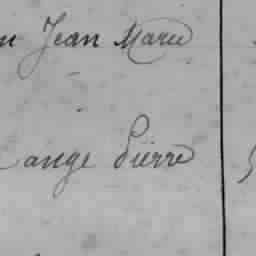 n Jean Marie
Lange Pierre